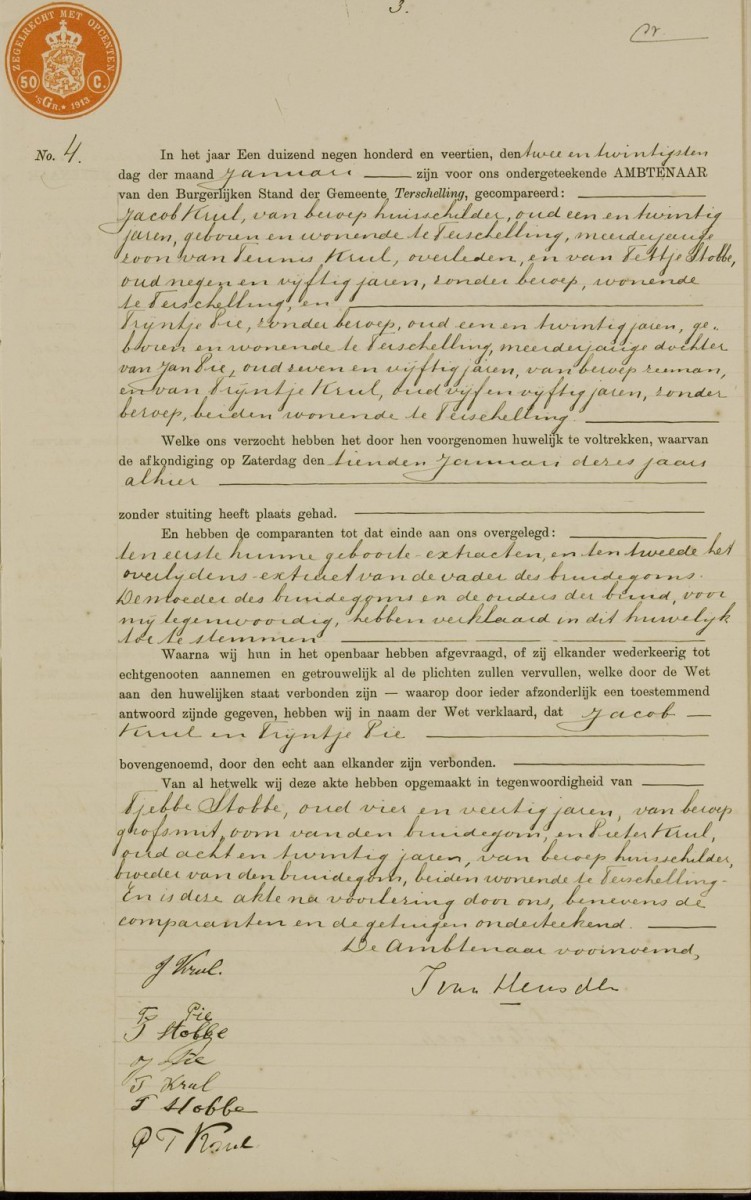 3.
ZEGELRECHT MET OPCENTEN
50 C.
'sGR. 1913
No. 4.
In het jaar Een duizend negen honderd en veertien, den twee en twintigsten
dag der maand Januari zijn voor ons ondergeteekende AMBTENAAR
van den Burgerlijken Stand der Gemeente Terschelling, gecompareerd:
Jacob Krul, van beroep huisschilder, oud een en twintig
jaren, geboren en wonende te Terschelling, meerderjarige
zoon van Teunis Krul, overleden, en van Tettje Stobbe,
oud negen en vijftig jaren, zonder beroep, wonende
te Terschelling, en
Trijntje Pie, zonder beroep, oud een en twintig jaren, ge-
boren en wonende te Terschelling, meerderjarige dochter
van Jan Pie, oud zeven en vijftig jaren, van beroep zeeman,
en van Trijntje Krul, oud vijf en vijftig jaren, zonder
beroep, beiden wonende te Terschelling.
Welke ons verzocht hebben het door hen voorgenomen huwelijk te voltrekken, waarvan
de afkondiging op Zaterdag den tienden Januari dezes jaars
alhier
zonder stuiting heeft plaats gehad.
En hebben de comparanten tot dat einde aan ons overgelegd:
ten eerste hunne geboorte-extracten, en ten tweede het
overlijdens-extract van de vader des bruidegoms.
De moeder des bruidegoms en de ouders der bruid, voor
mij tegenwoordig, hebben verklaard in dit huwelijk
toe te stemmen
Waarna wij hun in het openbaar hebben afgevraagd, of zij elkander wederkeerig tot
echtgenooten aannemen en getrouwelijk al de plichten zullen vervullen, welke door de Wet
aan den huwelijken staat verbonden zijn — waarop door ieder afzonderlijk een toestemmend
antwoord zijnde gegeven, hebben wij in naam der Wet verklaard, dat Jacob
Krul en Trijntje Pie
bovengenoemd, door den echt aan elkander zijn verbonden.
Van al hetwelk wij deze akte hebben opgemaakt in tegenwoordigheid van
Tjebbe Stobbe, oud vier en veertig jaren, van beroep
grofsmit, oom van den bruidegom, en Pieter Krul,
oud acht en twintig jaren, van beroep huisschilder,
broeder van den bruidegom, beiden wonende te Terschelling-
En is deze akte na voorlezing door ons, benevens de
comparanten en de getuigen onderteekend.
De Ambtenaar voornoemd,
J Krul.
J van Heusden
Tr Pie
T Stobbe
J Pie
T Krul
T Stobbe
P T Krul